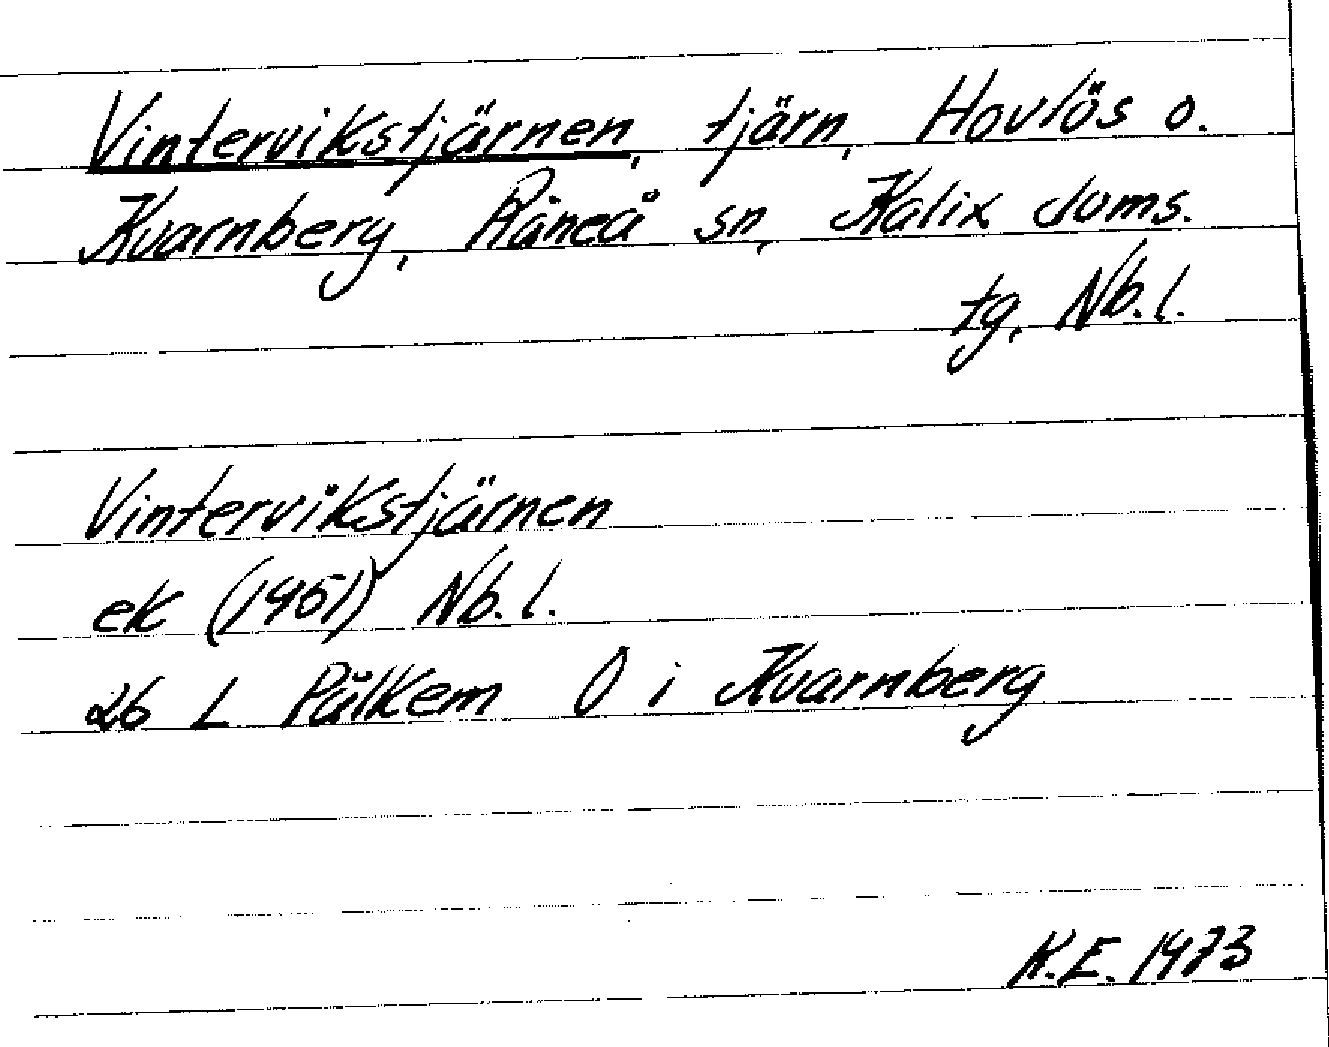 Vintervikstjärnen, tjärn, Hovlös o.
Kvarnberg, Råneå sn, Kalix doms.
tg. Nb.l.
Vintervikstjärnen
ek (1961) Nb.l.
26 L Pålkem O i Kvarnberg
K.E. 1973